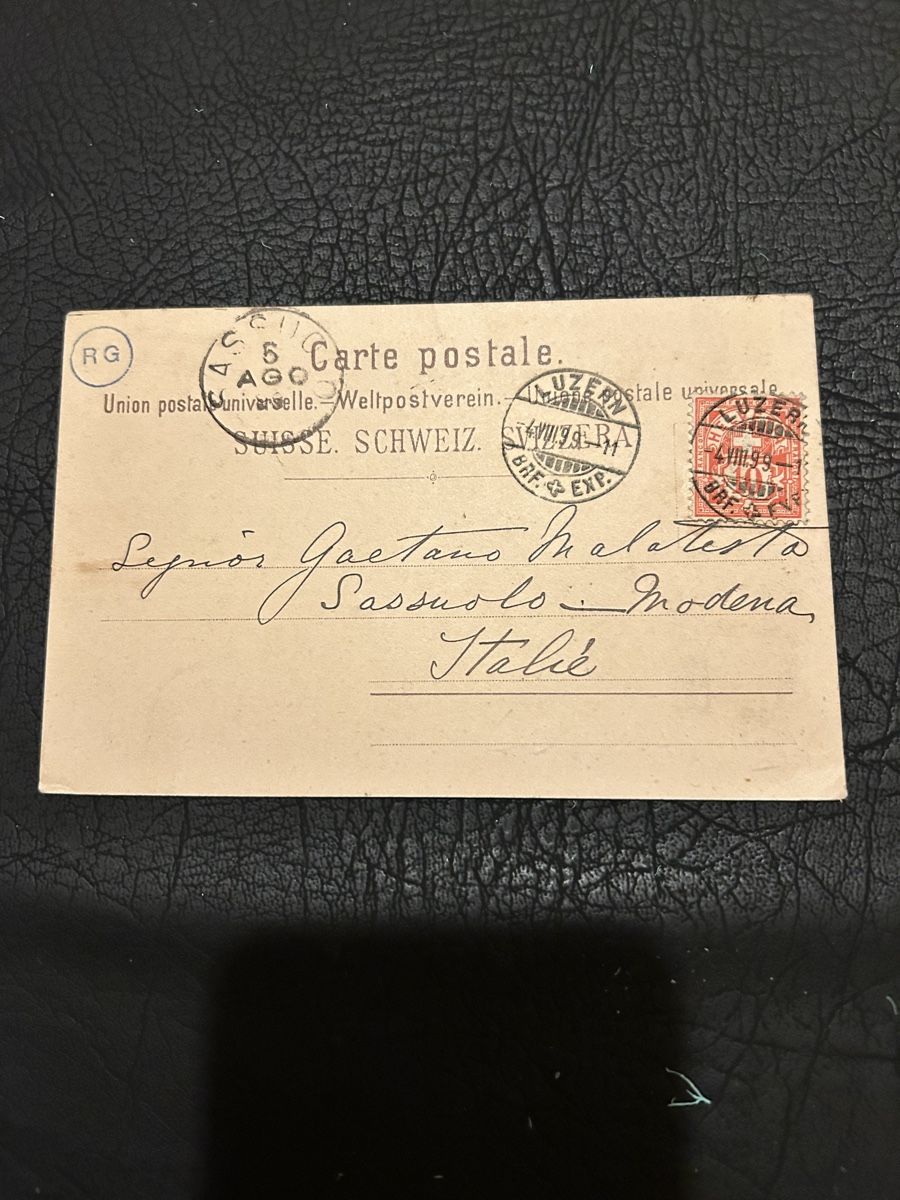 RG
SASSUOLO
5
AGO
99
Carte postale.
Union postale universelle. — Weltpostverein. — Unione postale universale
SUISSE. SCHWEIZ. SVIZZERA
LUZERN
-4.VIII.99.-11
BRF. EXP.
LUZERN
-4.VIII.99.-1
BRF. EXP.
10
Segniór Gaetano Malatesta
Sassuolo — Modena,
Italié